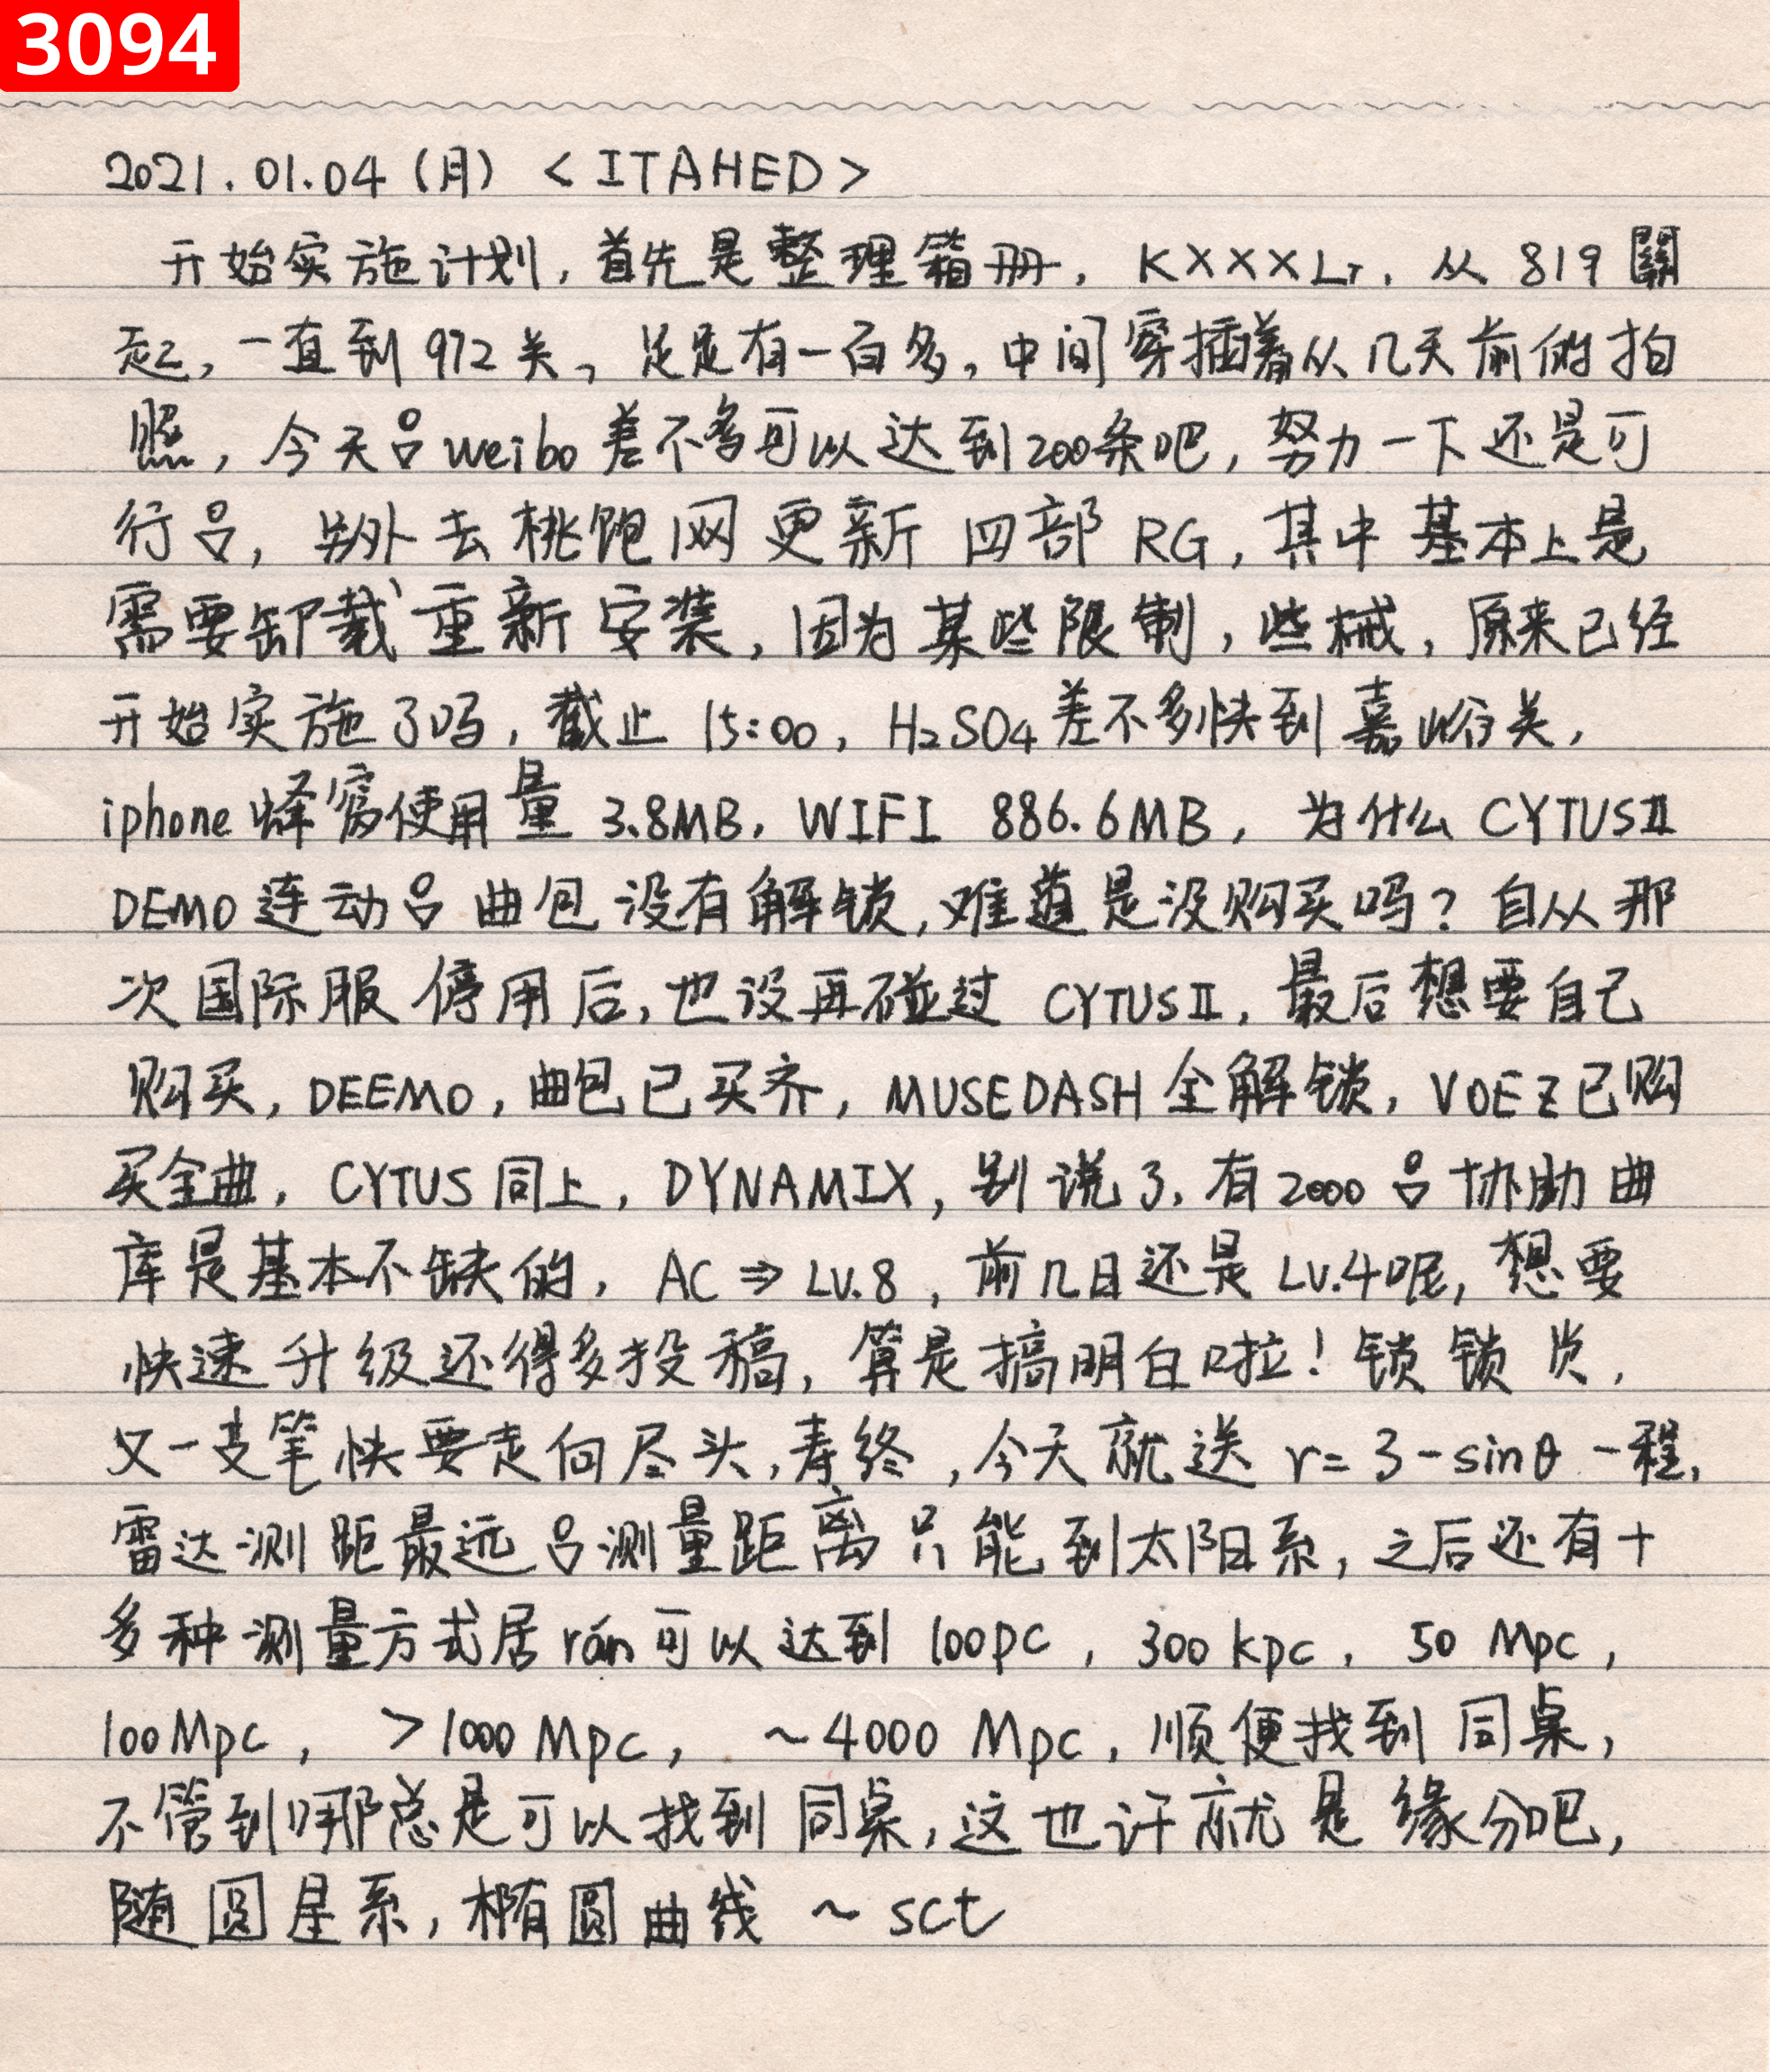 3094
2021.01.04(月) <ITAHED>
开始实施计划,首先是整理箱册,KXXXLr,从819關
起,一直到972关,足足有一百多,中间穿插着从几天前的拍
照,今天呂weibo差不多可以达到200条吧,努力一下还是可
行呂,另外去桃饱网更新四部RG,其中基本上是
需要卸载重新安装,因为某些限制,些械,原来已经
开始实施了吗,截止15:00,H₂SO4差不多快到嘉峪关,
iphone蜂窝使用量3.8MB,WIFI 886.6MB,为什么CYTUSⅡ
DEMO连动呂曲包没有解锁,难道是没购买吗?自从那
次国际服停用后,也没再碰过CYTUSⅡ,最后想要自己
购买,DEEMO,曲包已买齐,MUSEDASH全解锁,VOEZ已购
买全曲,CYTUS同上,DYNAMIX,别说了,有2000呂协助曲
库是基本不缺的,AC⇒LV.8,前几日还是LV.4呢,想要
快速升级还得多投稿,算是搞明白啦!锁锁 ,
又一支笔快要走向尽头,寿终,今天就送r=3-sinθ一程,
雷达测距最远呂测量距离只能到太阳系,之后还有十
多种测量方式居rán可以达到100pc,300kpc,50 Mpc,
100Mpc, >1000Mpc, ~4000 Mpc,顺便找到同桌,
不管到哪总是可以找到同桌,这也许就是缘分吧,
随圆星系,椭圆曲线~sct